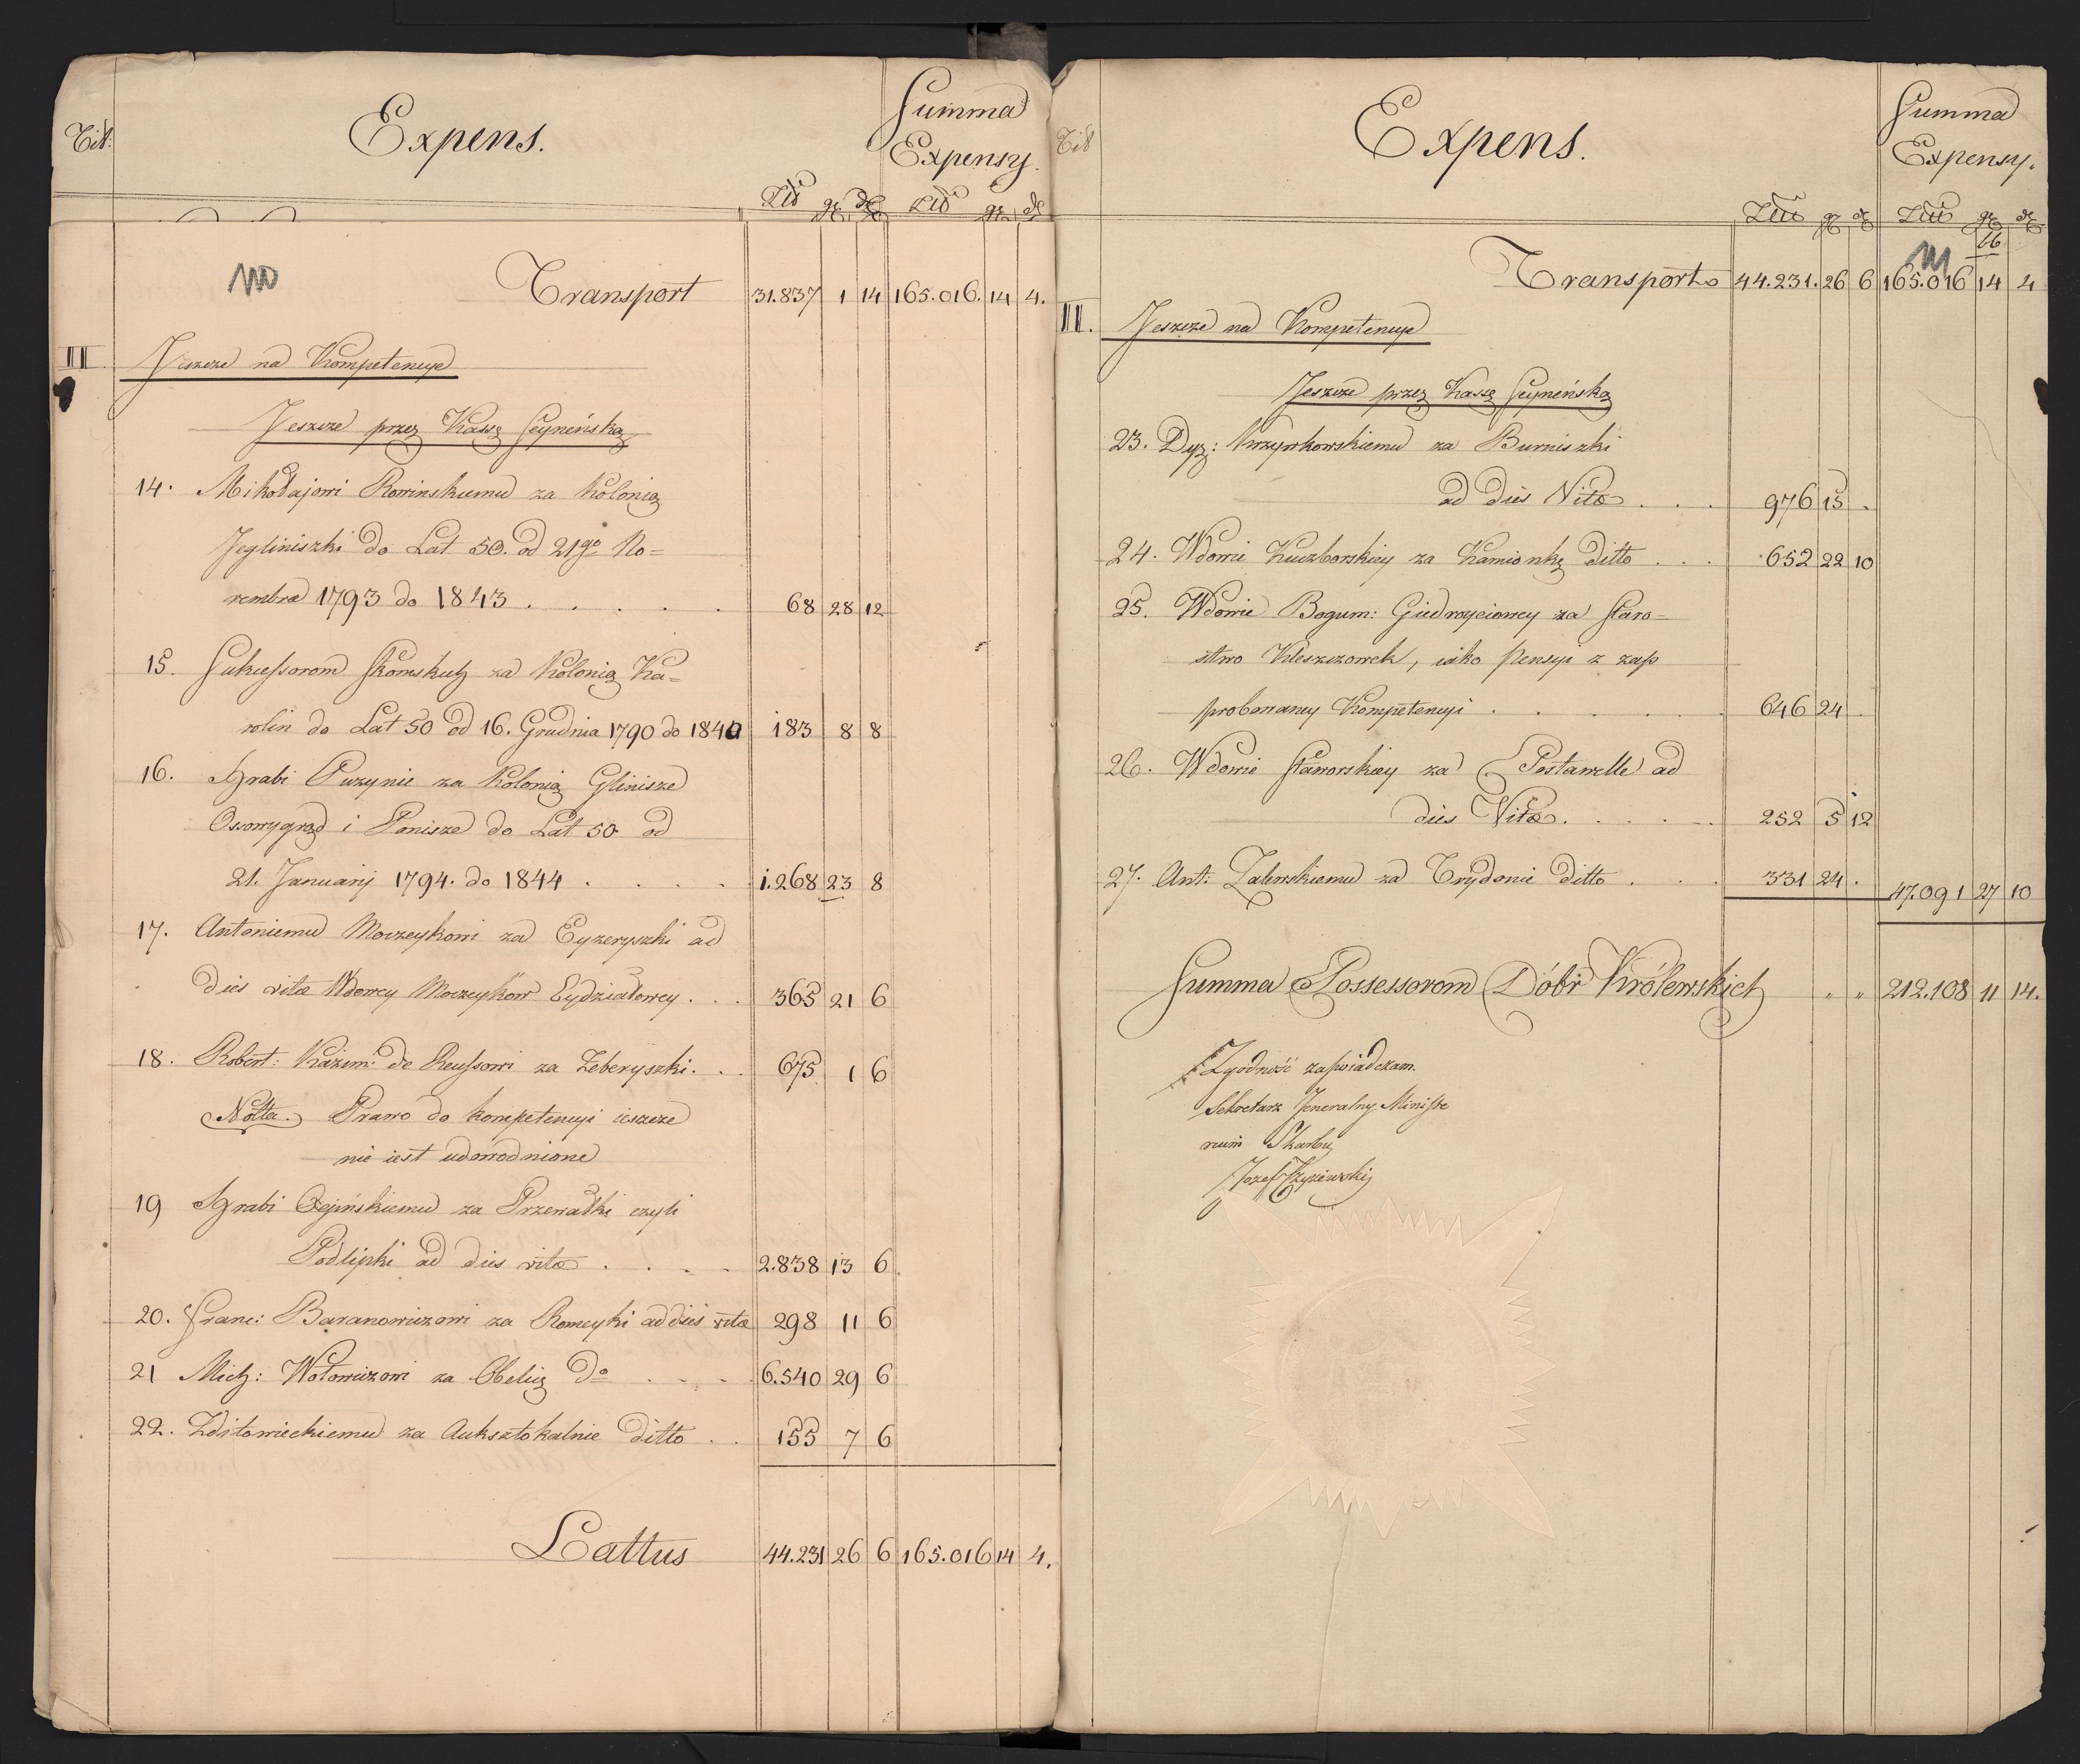 Tit: Expens. Summa Expensy.
Złł gr. d. Złł gr. d.
Transport 31.837 1 14 165.016. 14 4.
II Jeszcze na Kompetencye
Jeszcze przez Kassę Seyneńską
14. Mikołajowi Rowinskiemu za Kolonią
Jegliniszki do Lat 50. od 21go No=
vembra 1793 do 1843 . . . . . 68 28 12
15. Sukcessorom Skowskich za Kolonią Ka=
rolin do Lat 50 od 16. Grudnia 1790 do 1840 183 8 8
16. Hrabi Puzynie za Kolonią Glinisze
Ossowygrąd i Ponisze do Lat 50 od
21. Januarij 1794. do 1844 . . . . 1.268 23 8
17. Antoniemu Moczeykowi za Eyzeryszki ad
dies vitæ Wdowcy Moczeyków Eydziatowcy . . . 365 21 6
18. Robert: Kazim: de Reussowi za Zeberyszki. . . 675 1 6
Notta. Prawo do kompetencyi ieszcze
nie iest udowodnione
19 Hrabi Ożyińskiemu za Przewałki czyli
Podlipki ad dies vitæ . . . . 2.838 13 6
20. Franc: Baranowiczowi za Romeyki ad dies vitæ 298 11 6
21 Mich: Wołowiczowi za Obelią Do . . . 6.540 29 6
22. Zditowieckiemu za Auksztokalnie Ditto . . 155 7 6
Lattus 44.231 26 6 165.016 14 4.
Tit Expens. Summa Expensy.
Złł gr d Złł gr d
66
Transport 44.231. 26 6 165.016 14 4
II. Jeszcze na Kompetencye
Jeszcze przez Kassę Seyneńską
23. Dyz: Krzywkowskiemu za Burniszki
ad dies Vitæ . . . 976 15 .
24. Wdowie Kuczborskiey za Kamionkę ditto . . . 652 22 10
25. Wdowie Bogum: Giedroyciowey za Staro=
stwo Kleszczowek, iako Pensyi z zap
probowaney Kompetencyi . . . . . 646 24 .
26. Wdowie Staworskiey za Postawelle ad
dies Vitæ. . . . . 252 5 12
27. Ant: Zalewskiemu za Trydonie ditto . . . 331 24 . 47.091 27 10
Summa Possessorom Dóbr Królewskich " " 212.108 11 14.
Zgodność zaświadczam.
Sekretarz Jeneralny Ministe
rium Skarbu